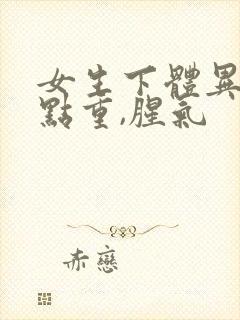 女生下體異
點重,腥氣
赤戀